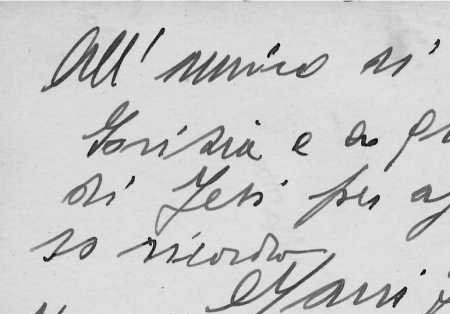 All'amico di
Gorizia e a qu
di Jesi per af
so ricordo
Mari